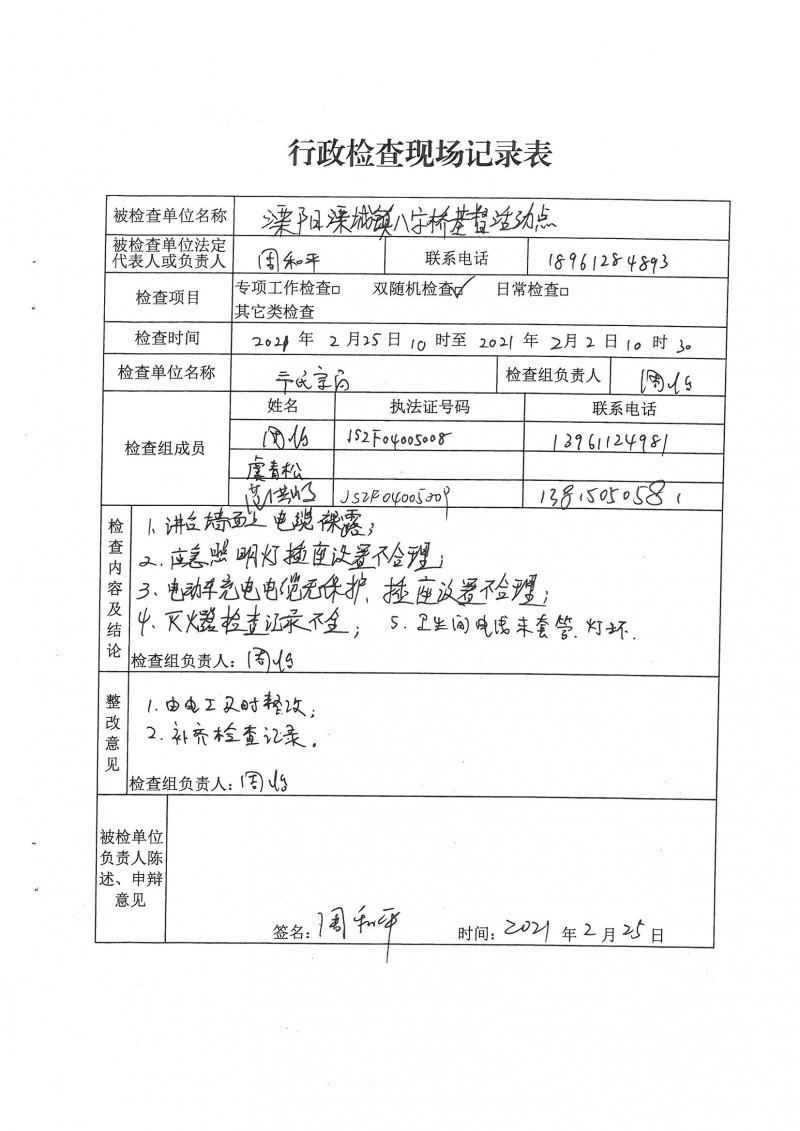 行政检查现场记录表
被检查单位名称 溧阳溧城镇八字桥基督活动点
被检查单位法定
代表人或负责人 周和平 联系电话 18961284893
检查项目 专项工作检查□ 双随机检查☑ 日常检查□
其它类检查
检查时间 2021 年 2 月 25 日 10 时至 2021 年 2 月 2 日 10 时 30
检查单位名称 市民宗局 检查组负责人 周
检查组成员 姓名 执法证号码 联系电话
周 JSZF04005008 13961124981
虞青松
范洪 JSZF04005009 13815050581
检查内容及结论
1、讲台墙面上电缆裸露；
2、应急照明灯插座设置不合理；
3、电动车充电电缆无保护、插座设置不合理；
4、灭火器检查记录不全； 5、卫生间电线未套管、灯坏.
检查组负责人：周
整改意见
1、由电工及时整改；
2、补齐检查记录。
检查组负责人：周
被检单位
负责人陈
述、申辩
意见
签名：周和平 时间：2021 年 2 月 25 日